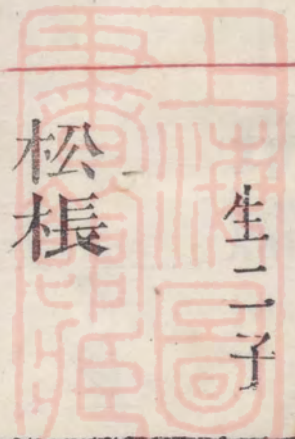 生二子
松棖